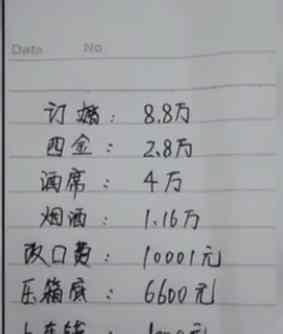 Date No
订婚：8.8万
四金：2.8万
酒席：4万
烟酒：1.16万
改口费：10001元
压箱底：6600元